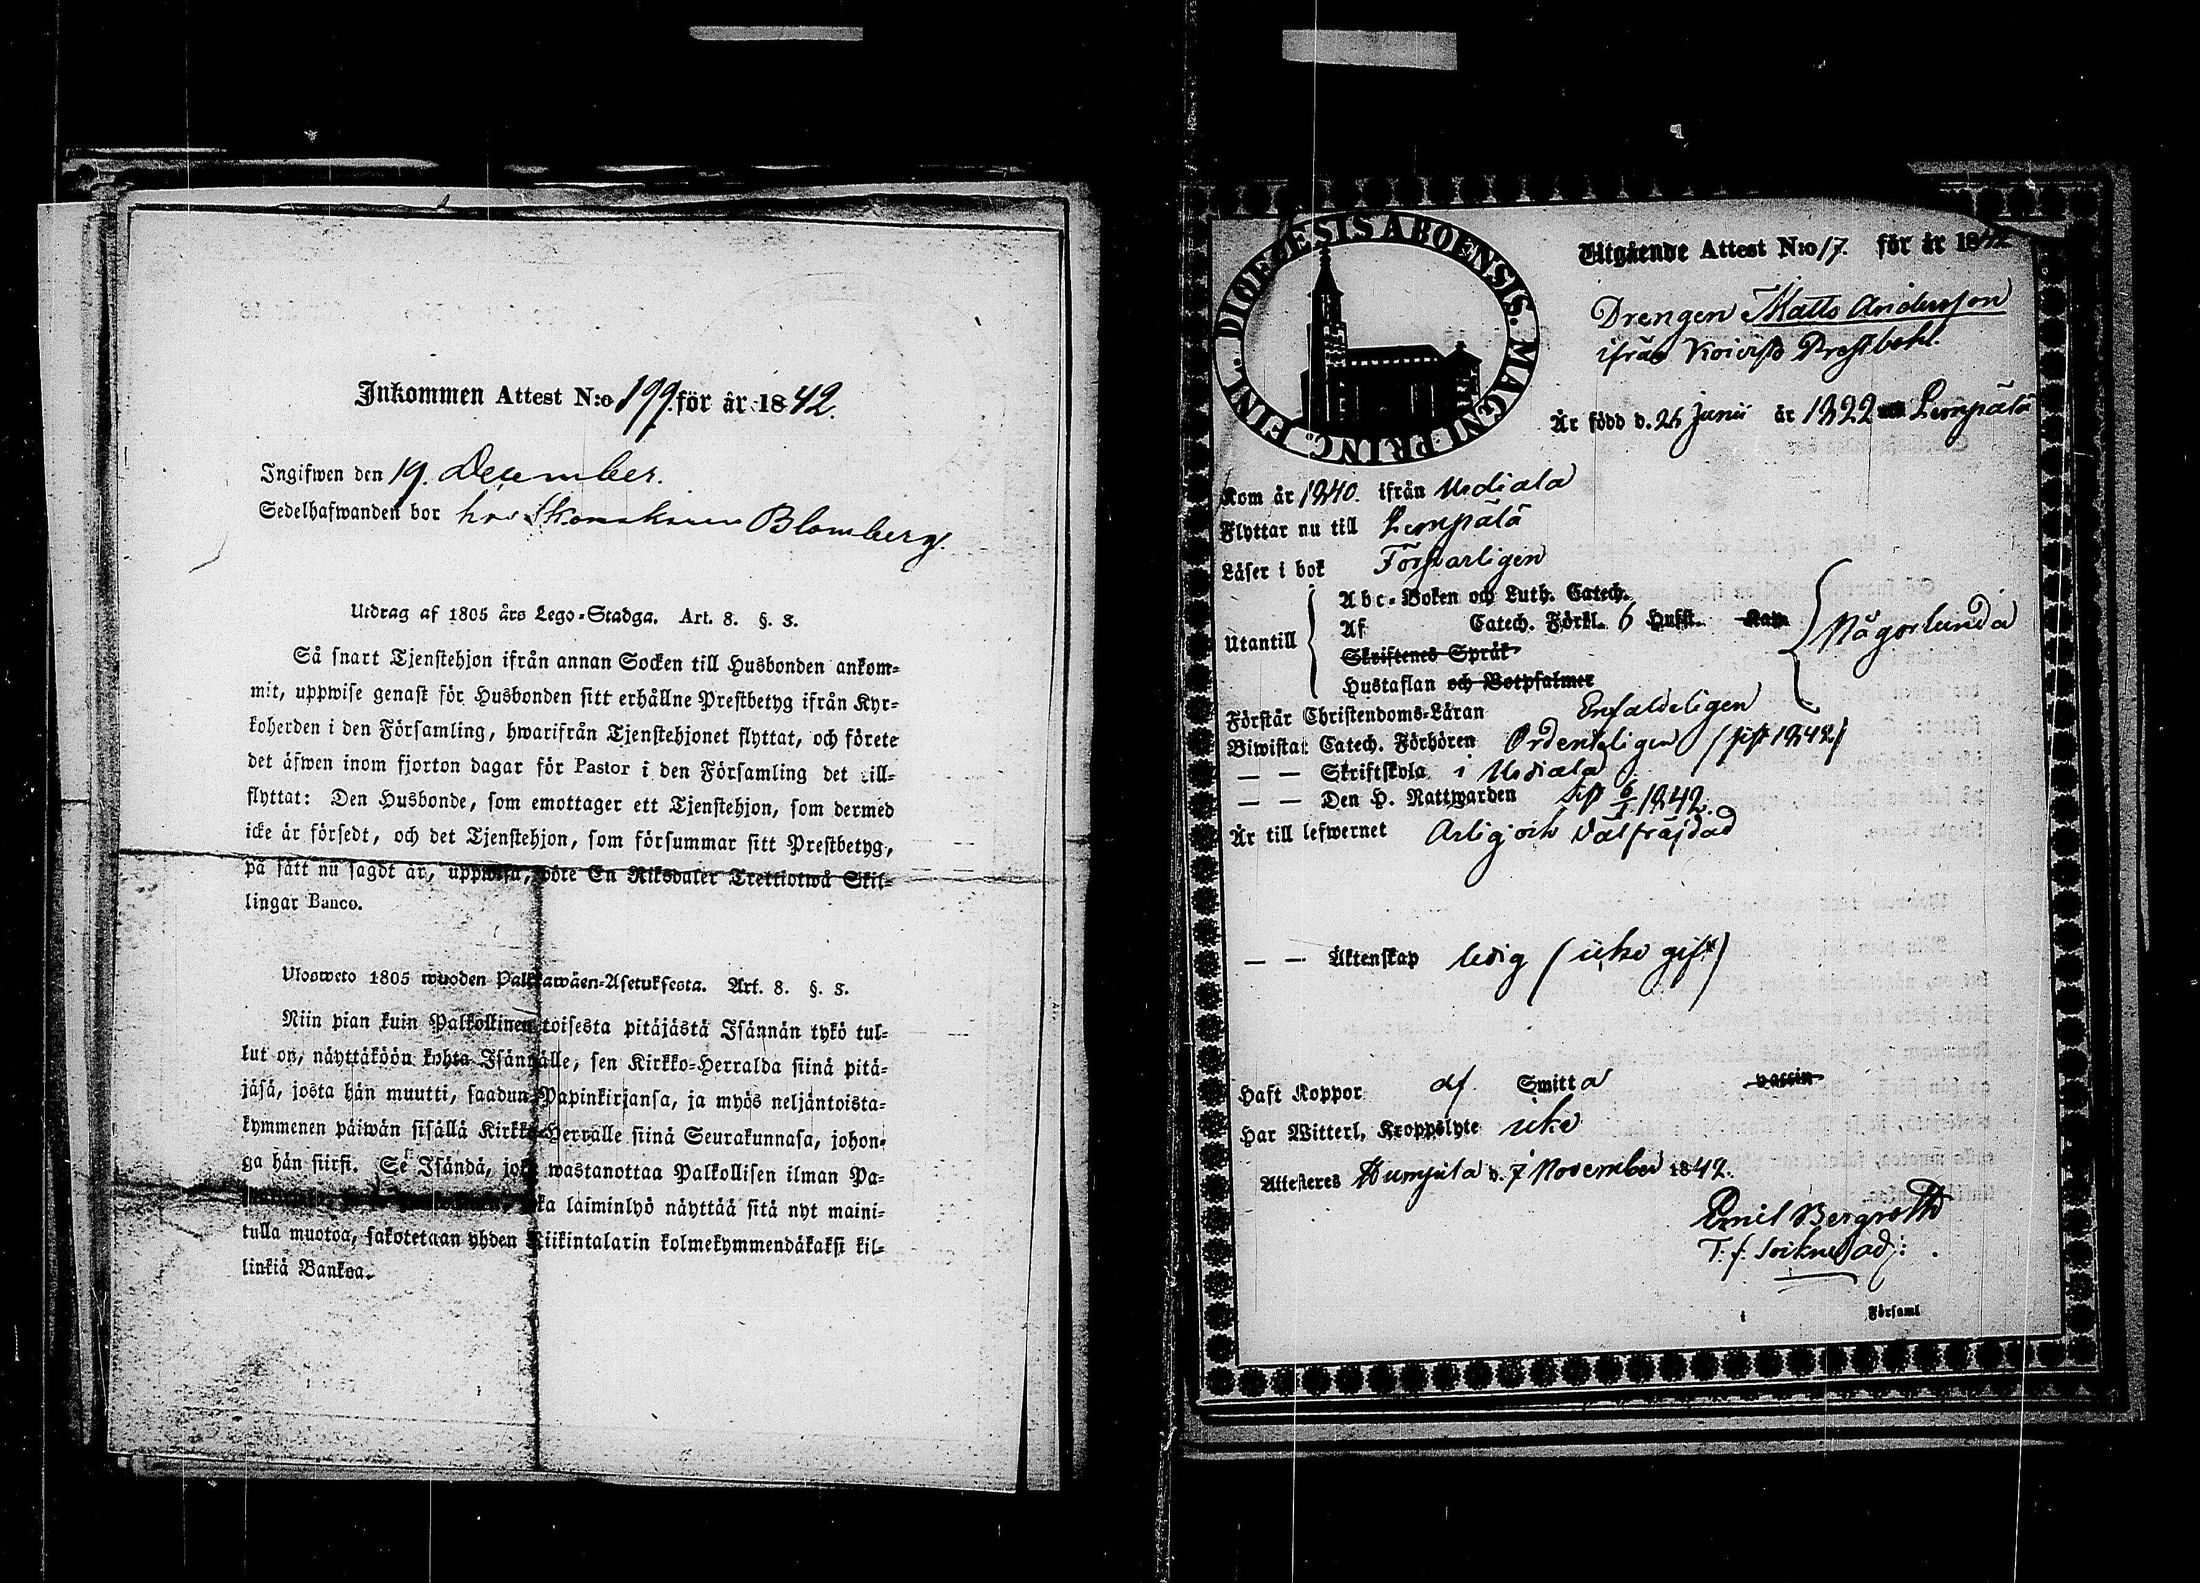 Inkommen Attest N:o 199. för år 1842.
Ingifwen den 19. December.
Sedelhafwanden bor hos Blomberg.
Utdrag af 1805 års Lego-Stadga. Art. 8. §. 3.
Så snart Tjenstehjon ifrån annan Socken till Husbonden ankom-
mit, uppwise genast för Husbonden sitt erhållne Prestbetyg ifrån Kyr-
koherden i den Församling, hwarifrån Tjenstehjonet flyttat, och förete
det äfwen inom fjorton dagar för Pastor i den Församling det till-
flyttat: Den Husbonde, som emottager ett Tjenstehjon, som dermed
icke är försedt, och det Tjenstehjon, som försummar sitt Prestbetyg,
på sätt nu sagdt är, uppwisa, böte En Riksdaler Trettiotwå Skil-
lingar Banco.
Ulosweto 1805 wuoden Palkkawäen-Asetuksesta. Art. 8. §. 3.
Niin pian kuin Palkollinen toisesta pitäjästä Isännän tykö tul-
lut on, näyttäköön kohta Isännälle, sen Kirkko-Herralda siinä pitä-
jäsä, josta hän muutti, saadun Papinkirjansa, ja myös neljäntoista-
kymmenen päiwän sisällä Kirkko-Herralle siinä Seurakunnasa, johon-
ga hän siirsi. Se Isändä, joka wastanottaa Palkollisen ilman Pa-
laiminlyö näyttää sitä nyt maini-
tulla muotoa, sakotetaan yhden Riikintalarin kolmekymmendäkaksi kil-
linkiä Bankoa.
DIOECESIS ABOENSIS. MAGNI PRINC. FINL.
Utgående Attest N:o 17. för år 1842
Drengen Matts Andersson
ifrån Koivisto Prestbohl.
Är född d. 26 Junii år 1822 Lempälä
Kom år 1840. ifrån Urdiala
Flyttar nu till Lempälä
Läser i bok Försvarligen
Utantill
Abc-Boken och Luth. Catech.
Af Catech. Förkl. 6 Hufst. Kap.
Skriftenes Språk
Hustaflan och Botpsalmer
Någorlunda
Förstår Christendoms-Läran Enfaldeligen
Biwistat Catech. Förhören Ordenteligen (sist 1842)
— — Skriftskola i Urdiala
— — Den H. Nattwarden sist 6/1 1842.
Är till lefwernet Ärlig och Välfräjdad
— — Äktenskap ledig (icke gift)
Haft Koppor af Smitta vaccin
Har Witterl. Kroppslyte icke
Attesteres Humpila d. 7 November 1842.
Emil Bergroth
T. f. Sockne adj:
i Församl